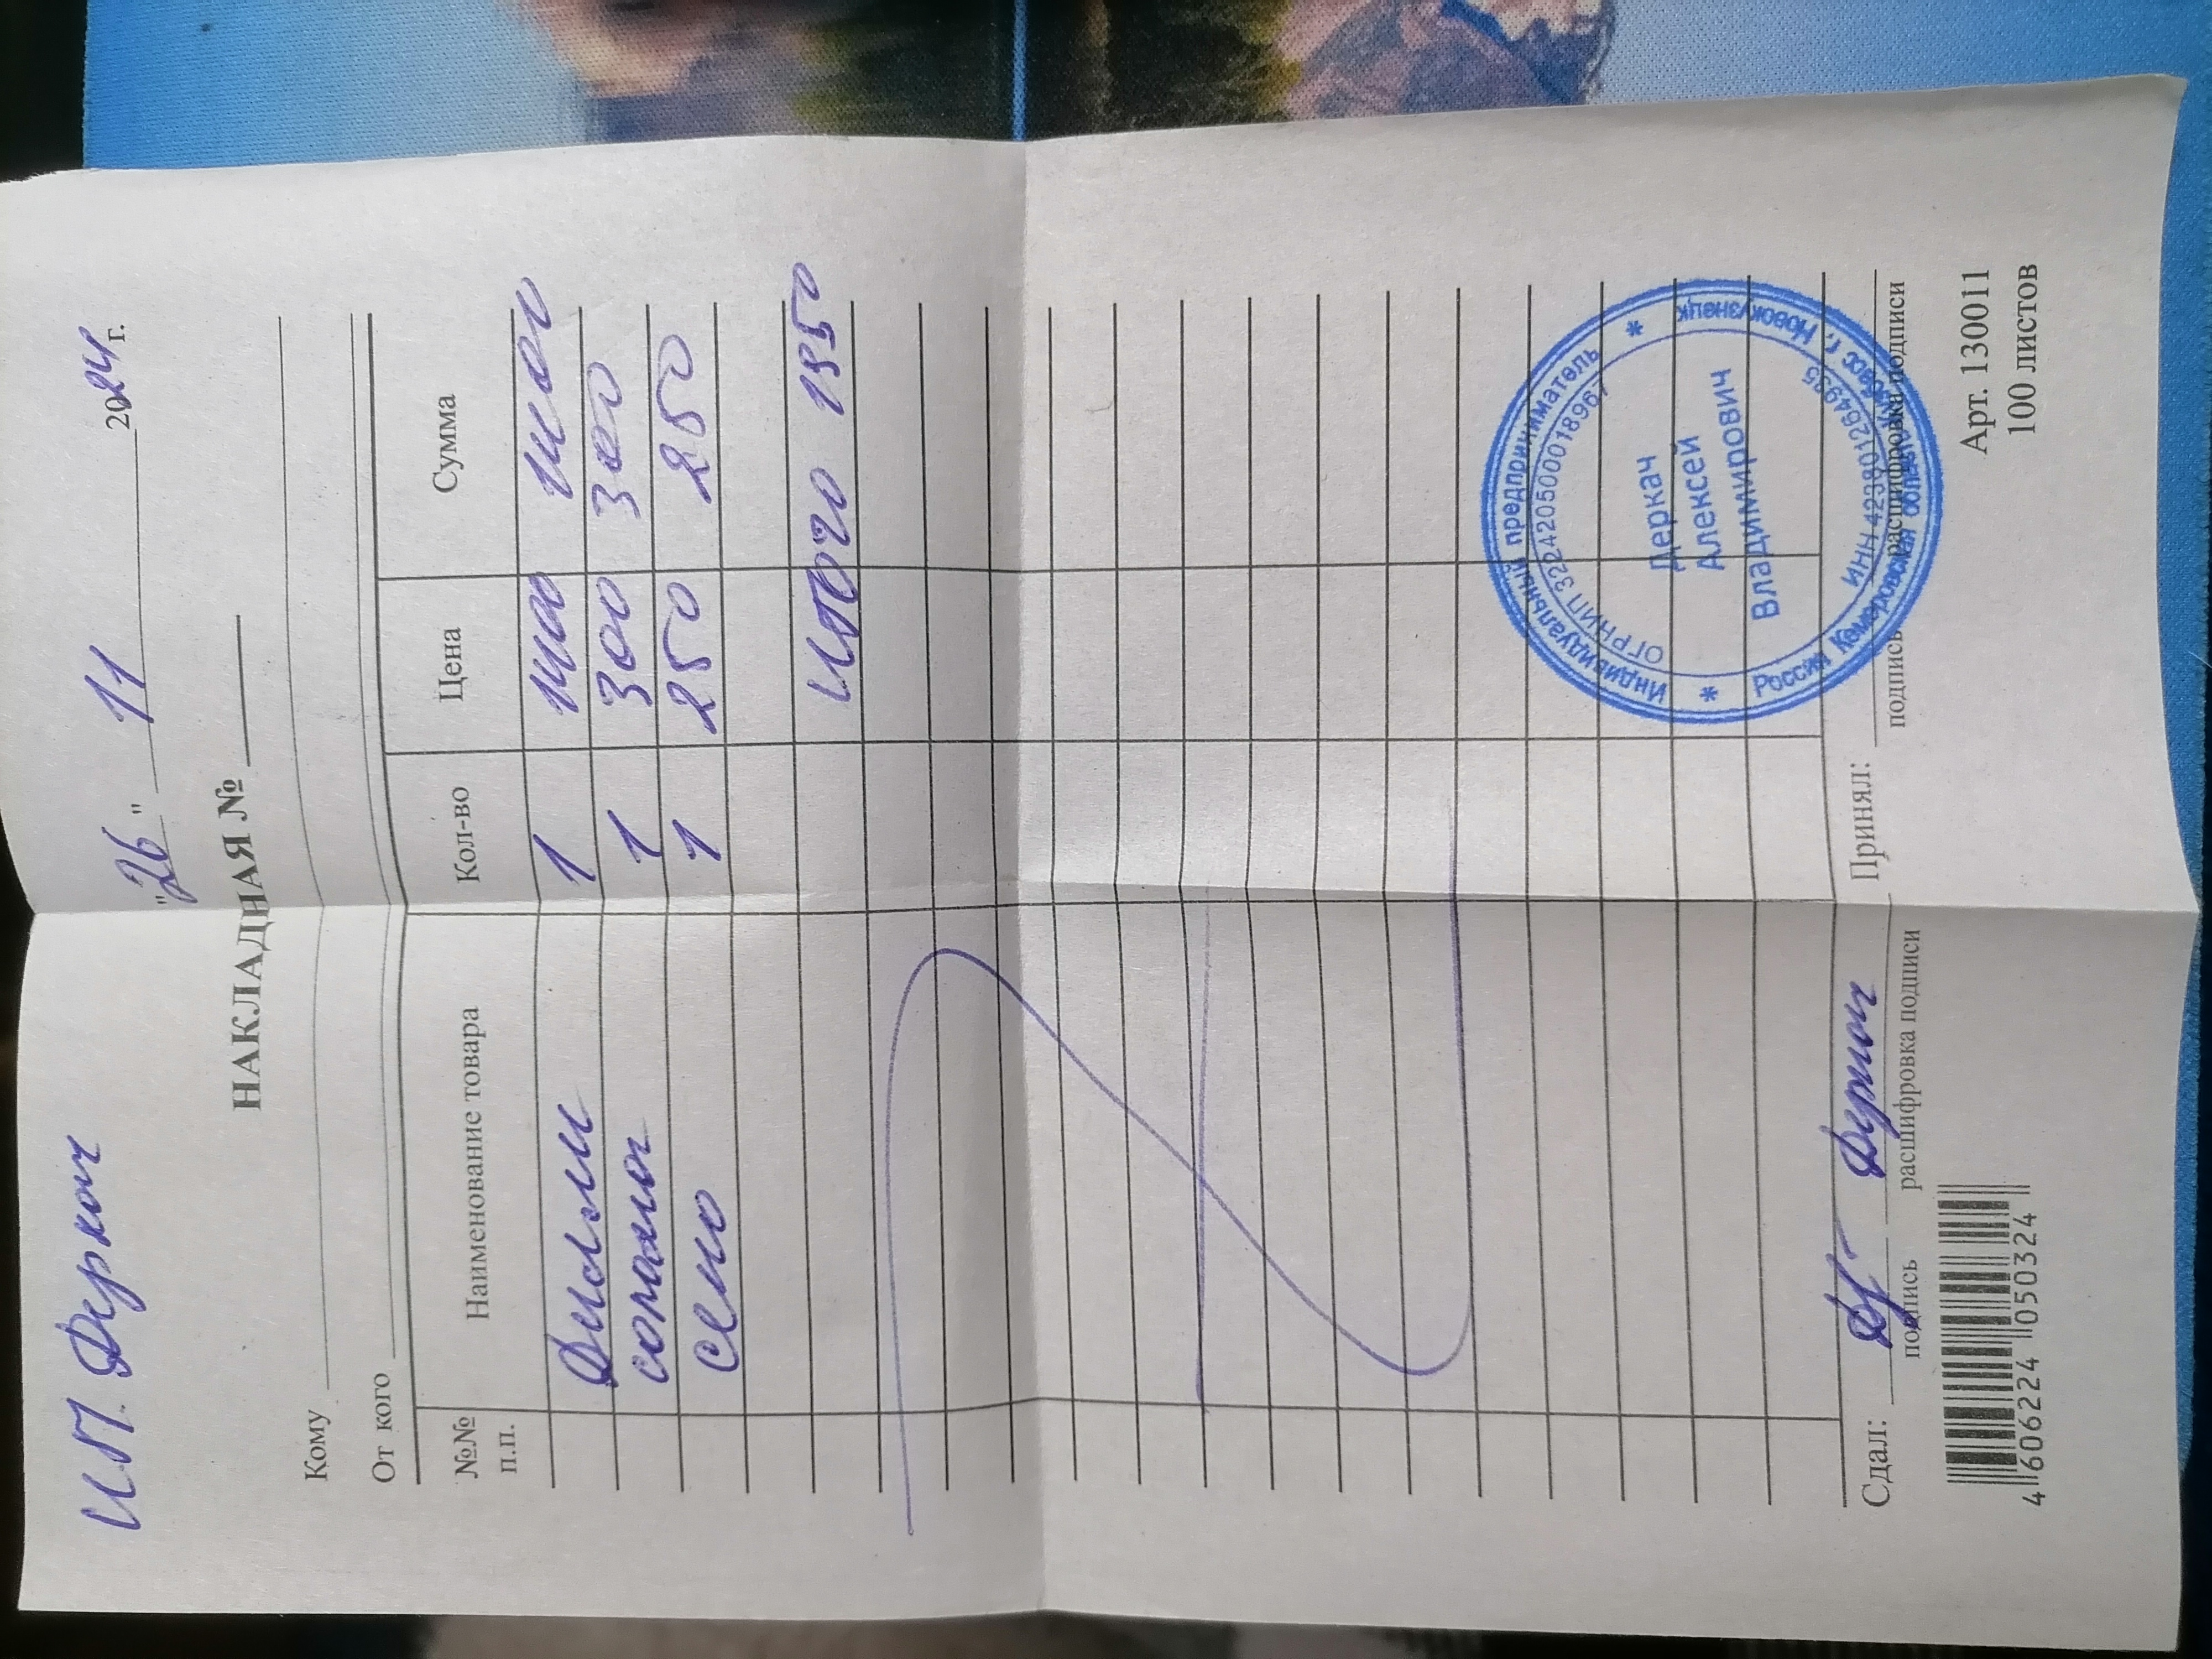 ИП. Деркач
"26" 11 2024 г.
НАКЛАДНАЯ №
Кому
От кого
№№ п.п. Наименование товара Кол-во Цена Сумма
1 1400 1400
солома 1 300 300
сено 1 250 250
итого 1950
Сдал: Деркач Принял:
подпись расшифровка подписи подпись расшифровка подписи
4 606224 050324
Арт. 130011
100 листов
Индивидуальный предприниматель
ОГРНИП 322420500018967
Деркач
Алексей
Владимирович
ИНН 423801264995
Россия Кемеровская область-Кузбасс г. Новокузнецк